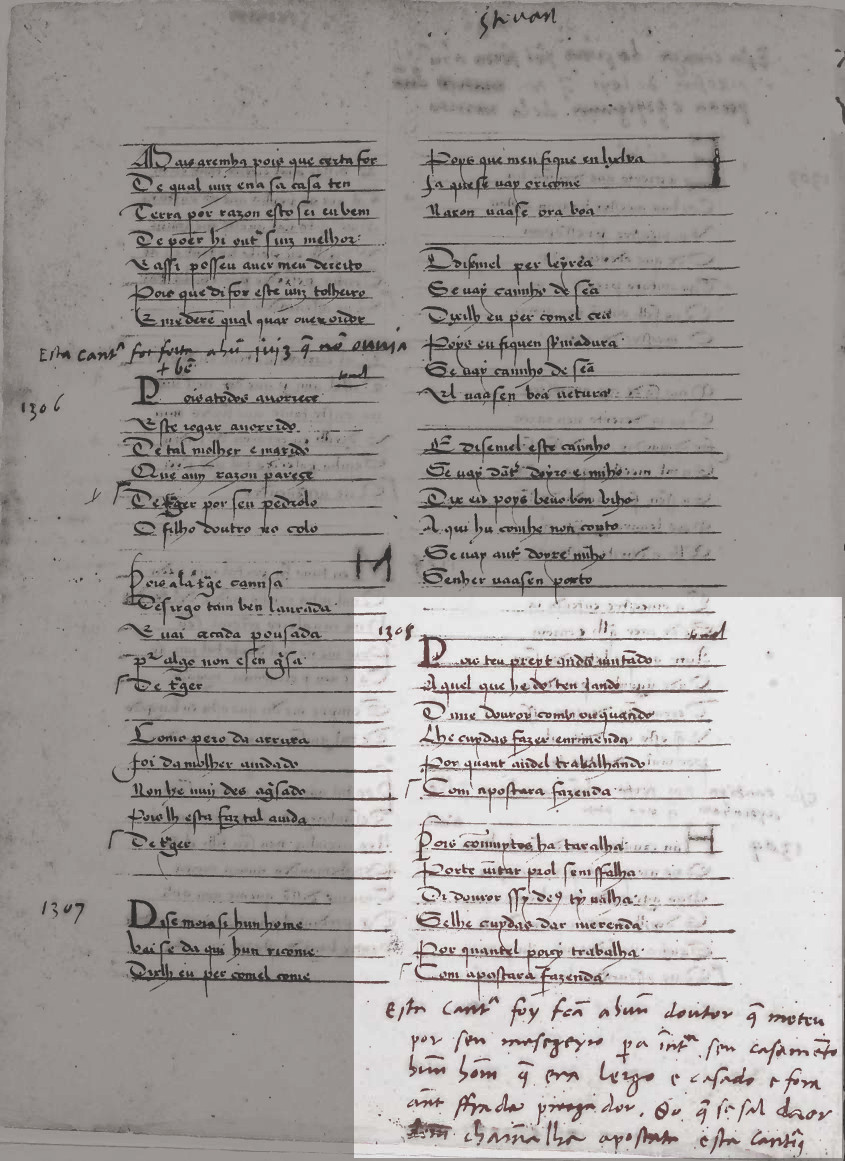 Stevan
Mais aremha pois que certa for
De qual iuiz en a sa casa ten
Terra por razon esto sei eu ben
De poer hi outr iuiz melhor
E assi posseu auer meu dereito
Pois que di for este iuiz tolheito
E mederen qual quer ouuidor
Esta cantª foi feita a hũ juiz q̃ nõ ouuia
+ bẽ
1306
Pois a todos auorrece
Este iogar auorrido
De tal molher e marido
Que a mĩ razon pareçe
De trager por seu pedrolo
O filho doutro no colo
Pois ala trage camisa
De sirgo tam ben laurada
E uai a cada pousada
pr algo non e sen gisa
De trager
Como pero da arruda
Foi da molher aiudado
Non he mui des aguisado
Pois lh esta faz tal aiuda
De trager
1307
Disemorasi hun home
Vaise da qui hun ricome
Dixlh eu per comel come
Poys que meu fique en
Ja quese uay o ricome
Naron uaase ora boa
Disemel per leyrẽa
Se uay caminho de sẽa
Dixilh eu per comel cea
Poys eu fiquen
Se uay caminho de sẽa
El uaasen boa uẽtura
E disemel este camĩho
Se uay dãtr doyro e mĩho
Dix eu poys beuo bon uĩho
A qui hu comhe non conto
Se uay antr doyre mĩho
Senher uaasen porto
1308
Pois teu preyt anda iuntado
Aquel que he do teu bando
Di me douror como ou quando
Lhe cuydas fazer enmenda
Por quant andel trabalhando
Com apostara fazenda
Pois comuptos ha taralha
Porte iũtar prol sen ffalha
Di douror ssy deꝰ ty ualha
Selhe cuydas dar merenda
Por quantel poys trabalha
Com apostara fazenda
Esta Cantª foy fcã a hũu doutor q̃ meteu
por seu mesegeyro pa iũtr seu casamẽto
hũu homẽ q̃ era e casado e fora
ante ffrade preegador. So q̃ se sal
chamalha apostata esta Cantigª